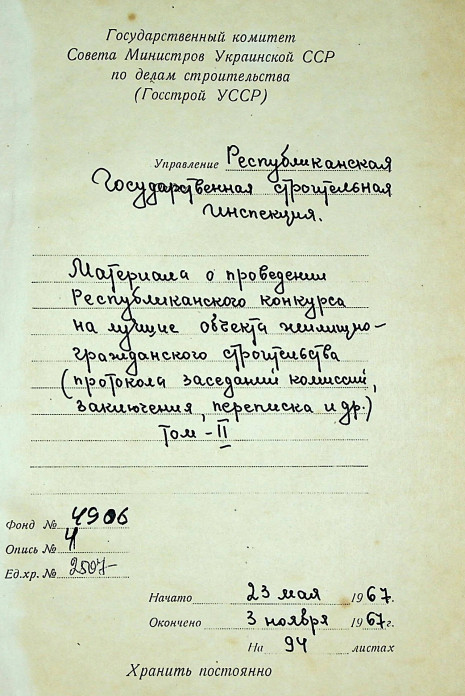 Государственный комитет
Совета Министров Украинской ССР
по делам строительства
(Госстрой УССР)
Управление Республиканская
Государственная строительная
инспекция.
Материала о проведении
Республиканского конкурса
на лучшие объекта жилищно-
гражданского строительства
(протокола заседаний комиссий,
заключения, переписка и др.)
том - II
Фонд № 4906
Опись № 4
Ед.хр. №
Начато 23 мая 1967.
Окончено 3 ноября 1967 г.
На 94 листах
Хранить постоянно